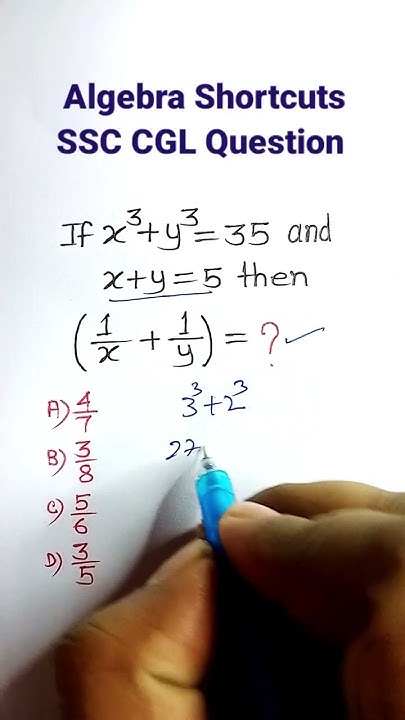 Algebra Shortcuts
SSC CGL Question
If x³+y³=35 and
x+y=5 then
(1/x + 1/y) = ?
A) 4/7
B) 3/8
C) 5/6
D) 3/5
3³+2³
27